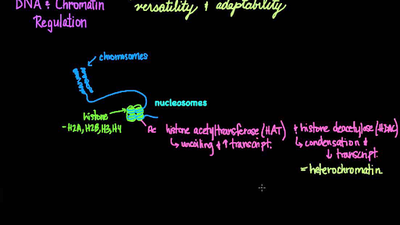 DNA & Chromatin
Regulation
versatility & adaptability
chromosomes
nucleosomes
histone
- H2A, H2B, H3, H4
Ac
histone acetyltransferase (HAT)
↳ uncoiling & ↑ transcript.
histone deacetylase (HDAC)
↳ condensation &
↓ transcript.
= heterochromatin